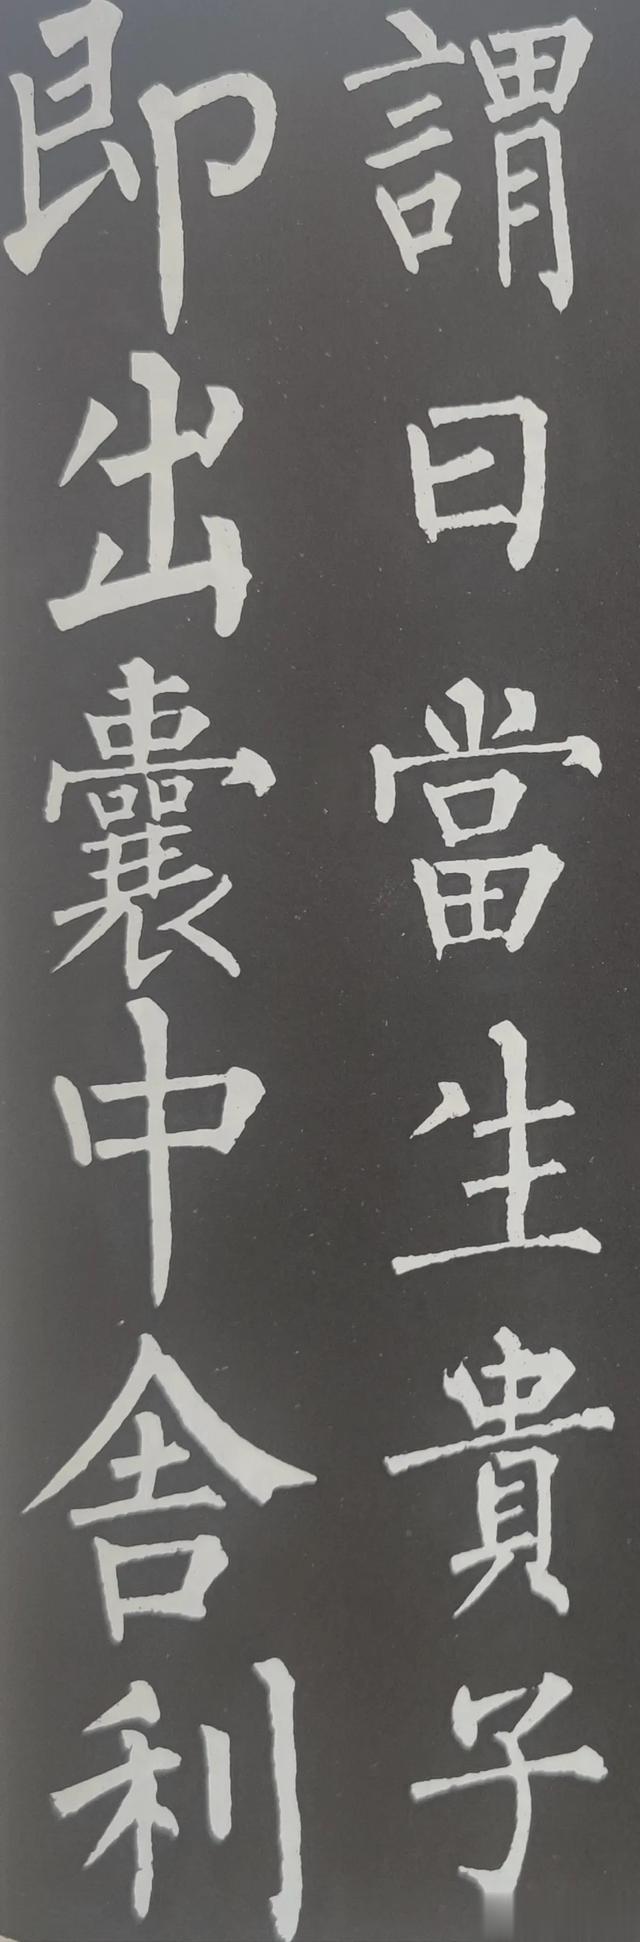 謂曰當生貴子
即出囊中舍利